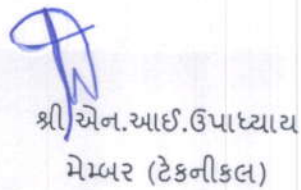 શ્રી એન.આઈ.ઉપાધ્યાય
મેમ્બર (ટેકનીકલ)